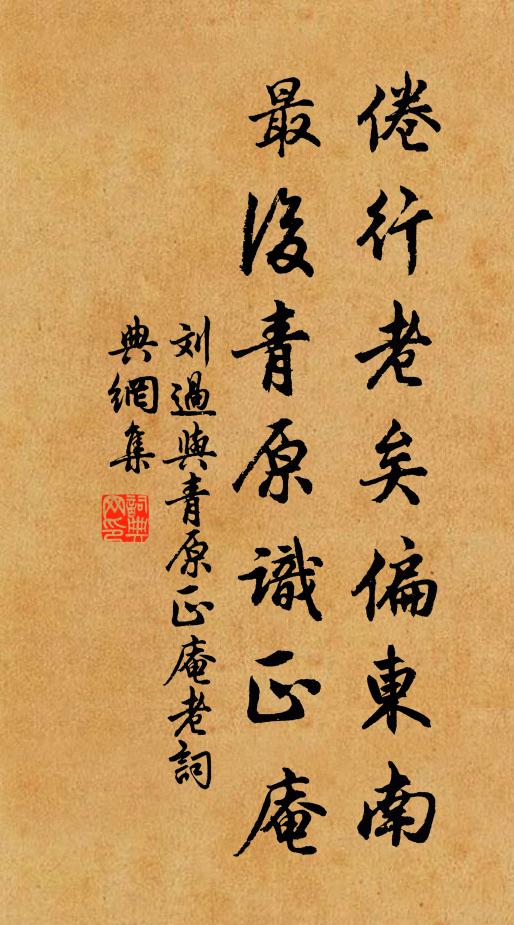 倦行老矣偏東南
最後青原識正庵
刘過與青原正庵老詞
典網集
詞典網印